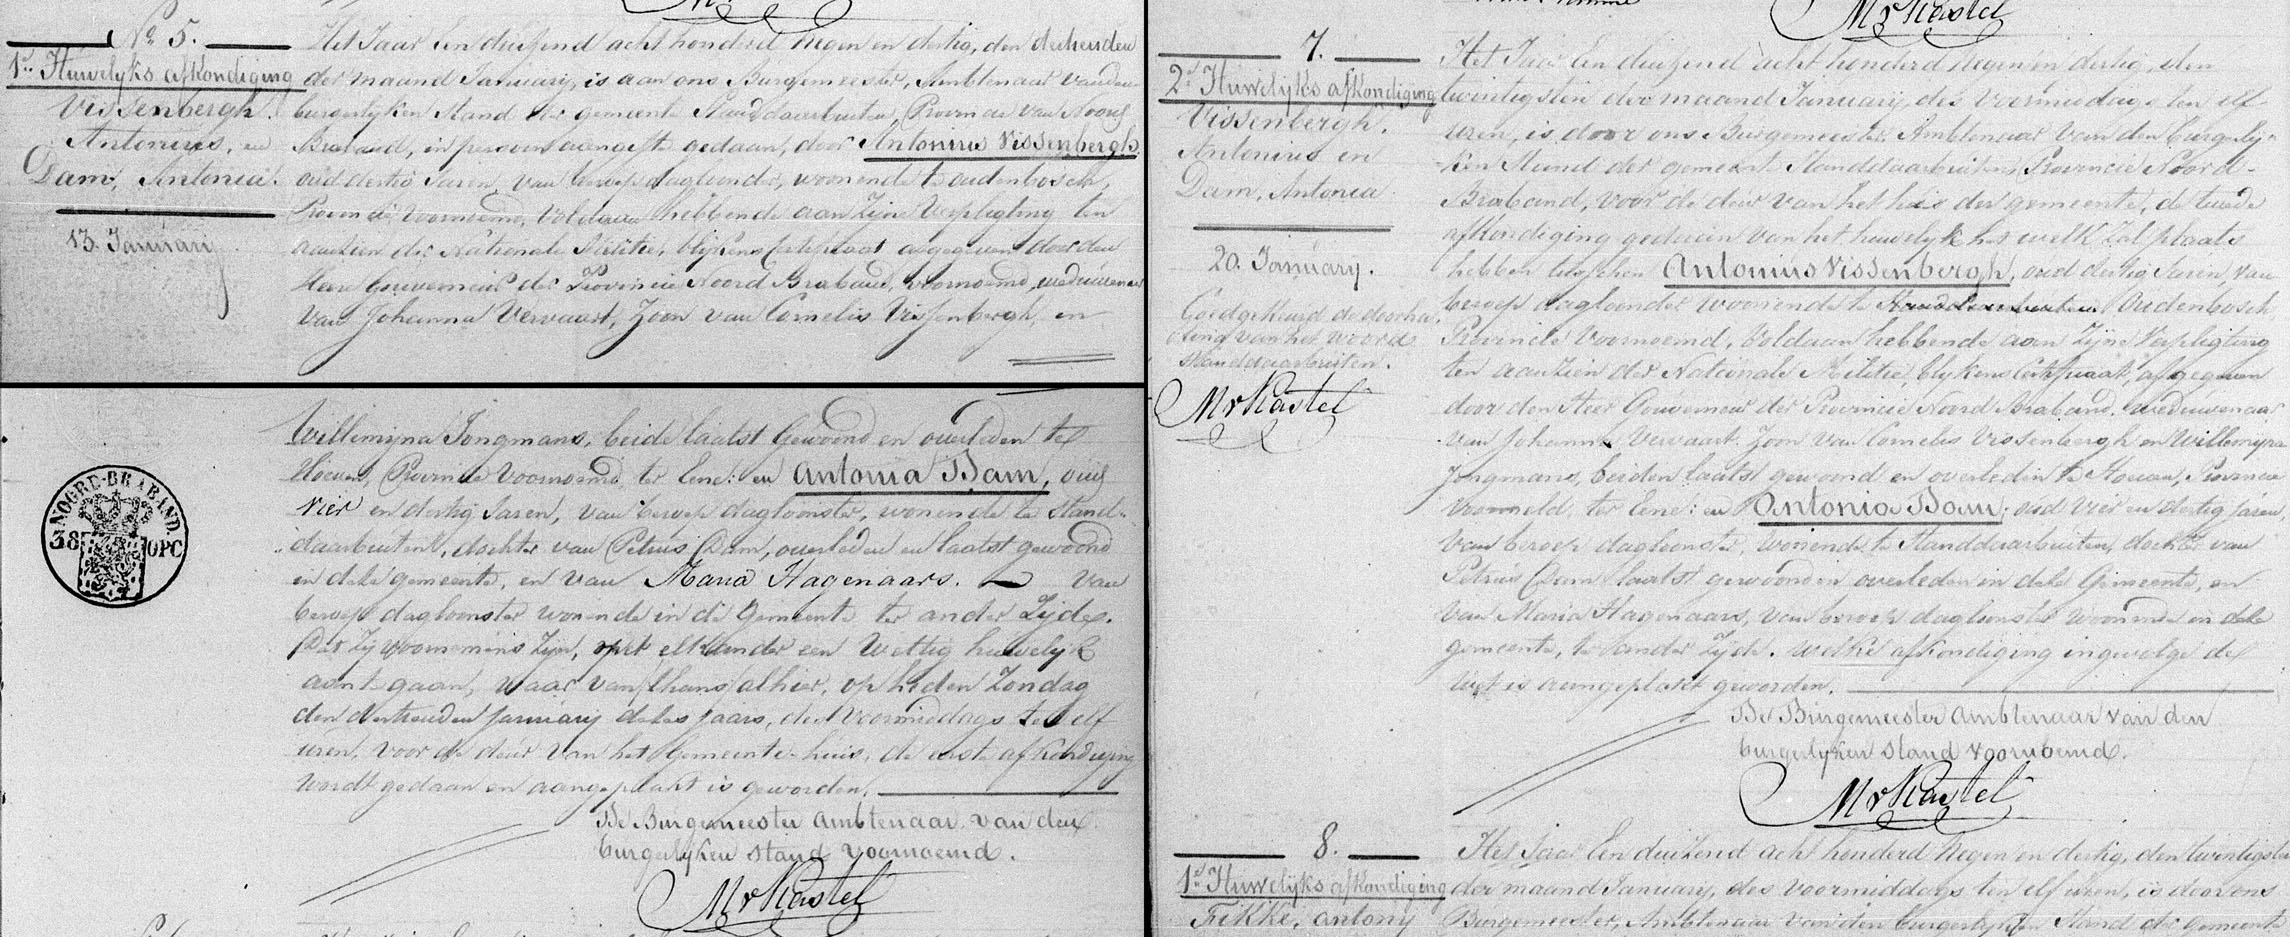 No. 5.
1e. Huwelijks afkondiging
Vissenbergh.
Antonius, en
Dam, Antonia.
13. Januarij
Het Jaar Een duizend acht honderd Negen en dertig, den dertienden
der maand Januarij, is aan ons Burgemeester, Ambtenaar van den
burgerlijken Stand der gemeente Standdaarbuiten, Provincie van Noord
Braband, in persoon aangifte gedaan, door Antonius Vissenbergh.
oud dertig Jaren, van beroep daglooner, woonende te oudenbosch,
Provincie Voornoemd, Voldaan hebbende aan Zijne Verpligting ten
aanzien der Nationale Militie, blijkens Certificaat afgegeven door den
Heer Gouverneur der Provincie Noord Braband, voornoemd, weduwenaar
van Johanna Vervaart, Zoon van Cornelis Vissenbergh, en
Willemijna Jongmans, beide laatst Gewoond en overleden te
Hoeven, Provincie Voornoemd ter Eene: en Antonia Dam, oud
vier en dertig Jaren, van beroep dagloonster, wonende te Stand-
daarbuiten, dochter van Petrus Dam, overleden en laatst gewoond
in deze gemeente, en van Maria Hagenaars. van
beroep dagloonster wonende in de Gemeente ter ander Zijde.
Dat Zij voornemens Zijn, met elkander een Wettig huwelijk
aan te gaan, waar van thans alhier, op heden Zondag
den dertienden Januarij dezes jaars, des Voormiddags te elf
uren, voor de deur van het Gemeente-huis, de eerste afkondiging
wordt gedaan en aangeplakt is geworden.
De Burgemeester Ambtenaar van den
burgerlijken Stand Voornoemd.
MvKastel
NOORD-BRABAND
38 OPC
MvKastel
7.
2e. Huwelijks afkondiging
Vissenbergh.
Antonius en
Dam, Antonia
20. Januarij.
Goedgekeurd de doorha-
ling van het woord
Standdaarbuiten.
MvKastel
Het Jaar Een duizend acht honderd Negen en dertig, den
twintigsten der maand Januarij, des Voormiddags ten elf
uren, is door ons Burgemeester Ambtenaar van den burgerlij-
ken Stand der gemeente Standdaarbuiten Provincie Noord-
Braband, voor de deur van het huis der gemeente, de tweede
afkondiging gedaan van het huwelijk het welk Zal plaats
hebben tusschen Antonius Vissenbergh, oud dertig Jaren, van
beroep daglooner woonende te Standdaarbuiten Oudenbosch
Provincie Voornoemd, Voldaan hebbende aan Zijne Verpligting
ten aanzien der Nationale Militie, blijkens Certificaat, afgegeven
door den Heer Gouverneur der Provincie Noord Braband, weduwenaar
van Johanna Vervaart. Zoon van Cornelis Vissenbergh en Willemijna
Jongmans, beiden laatst gewoond en overleden te Hoeven, Provincie
Voormeld, ter Eene: en Antonia Dam, oud vier en dertig jaren,
van beroep dagloonster, wonende te Standdaarbuiten, dochter van
Petrus Dam laatst gewoond en overleden in deze Gemeente, en
van Maria Hagenaars, van beroep dagloonster woonende in deze
gemeente, ter ander Zijde. Welke afkondiging ingevolge de
wet is aangeplakt geworden.
De Burgemeester Ambtenaar van den
burgerlijken Stand Voornoemd.
MvKastel
8.
1e. Huwelijks afkondiging
Fikke, Antony
Het Jaar Een duizend acht honderd Negen en dertig, den twintigsten
der maand Januarij, des Voormiddags ten elf uren, is door ons
Burgemeester, Ambtenaar van den burgerlijken Stand der gemeente